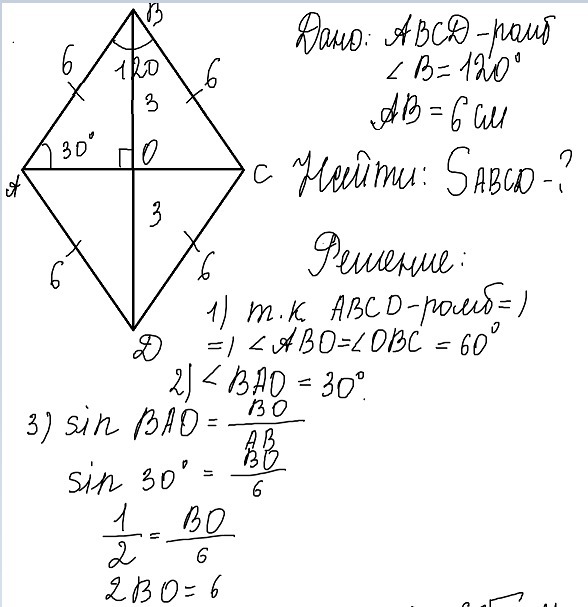 B
6
120
6
3
30°
O
A
C
3
6
6
D
Дано: ABCD-ромб
∠B=120°
AB=6см
Найти: SABCD-?
Решение:
1) т.к ABCD-ромб=)
=) ∠ABO=∠OBC = 60°
2) ∠BAO = 30°.
3) sin BAO = BO/AB
sin 30° = BO/6
1/2 = BO/6
2BO=6